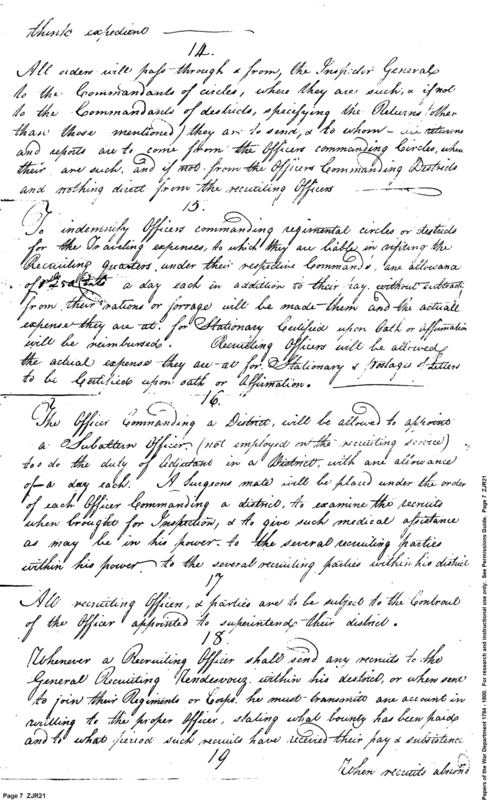 think expedient
14.
All orders will pass through & from, the Inspector General
to the Commandants of circles, where they are such, & if not
to the Commandants of destricts, specifying the Returns (other
than those mentioned) they are to send, & to whom - returns
and reports are to come from the Officers commanding Circles, when
their are such, and if not from the Officers Commanding Districts
and nothing direct from the recruiting Officers
15.
To indemnify Officers commanding regimental circles or destricts
for the Traveling expenses, to which they are liable in visiting the
Recruiting Quarters, under their respective Command's, ane allowance
of a day each in addition to their pay, without
from their rations or forrage will be made them and the actuall
expense they are at for Stationary Certified upon Oath or affirmation
will be reimbursed. Recruiting Officers will be allowed
the actual expense they are at for Stationary & postages of Letters
to be Certified upon oath or Affirmation.
16.
The Officer Commanding a District, will be allowed to appoint
a Subaltern Officer (not employed on the recruiting service)
to do the duty of Adjutant in a District, with ane allowance
of — a day each. A Surgeons mate will be placed under the order
of each Officer Commanding a district, to examine the recruits
when brought for Inspection, & to give such medical assistance
as may be in his power to the several recruiting parties
within his power to the several recruiting parties within his district
17
All recruiting Officers, & parties are to be subject to the Controul
of the Officer appointed to superintend their district.
18.
Whenever a Recruiting Officer shall send any recruits to the
General Recruiting Rendevouz within his district, or when sent
to join their Regiments or Corps. he must transmitt ane account in
writting to the proper Officer, stating what bounty has been paid
and to what period such recruits have received their pay & subsistence
19
When recruits abscond
Page 7 ZJR21
Papers of the War Department 1784 - 1800. For research and instructional use only. See Permissions Guide. Page 7 ZJR21